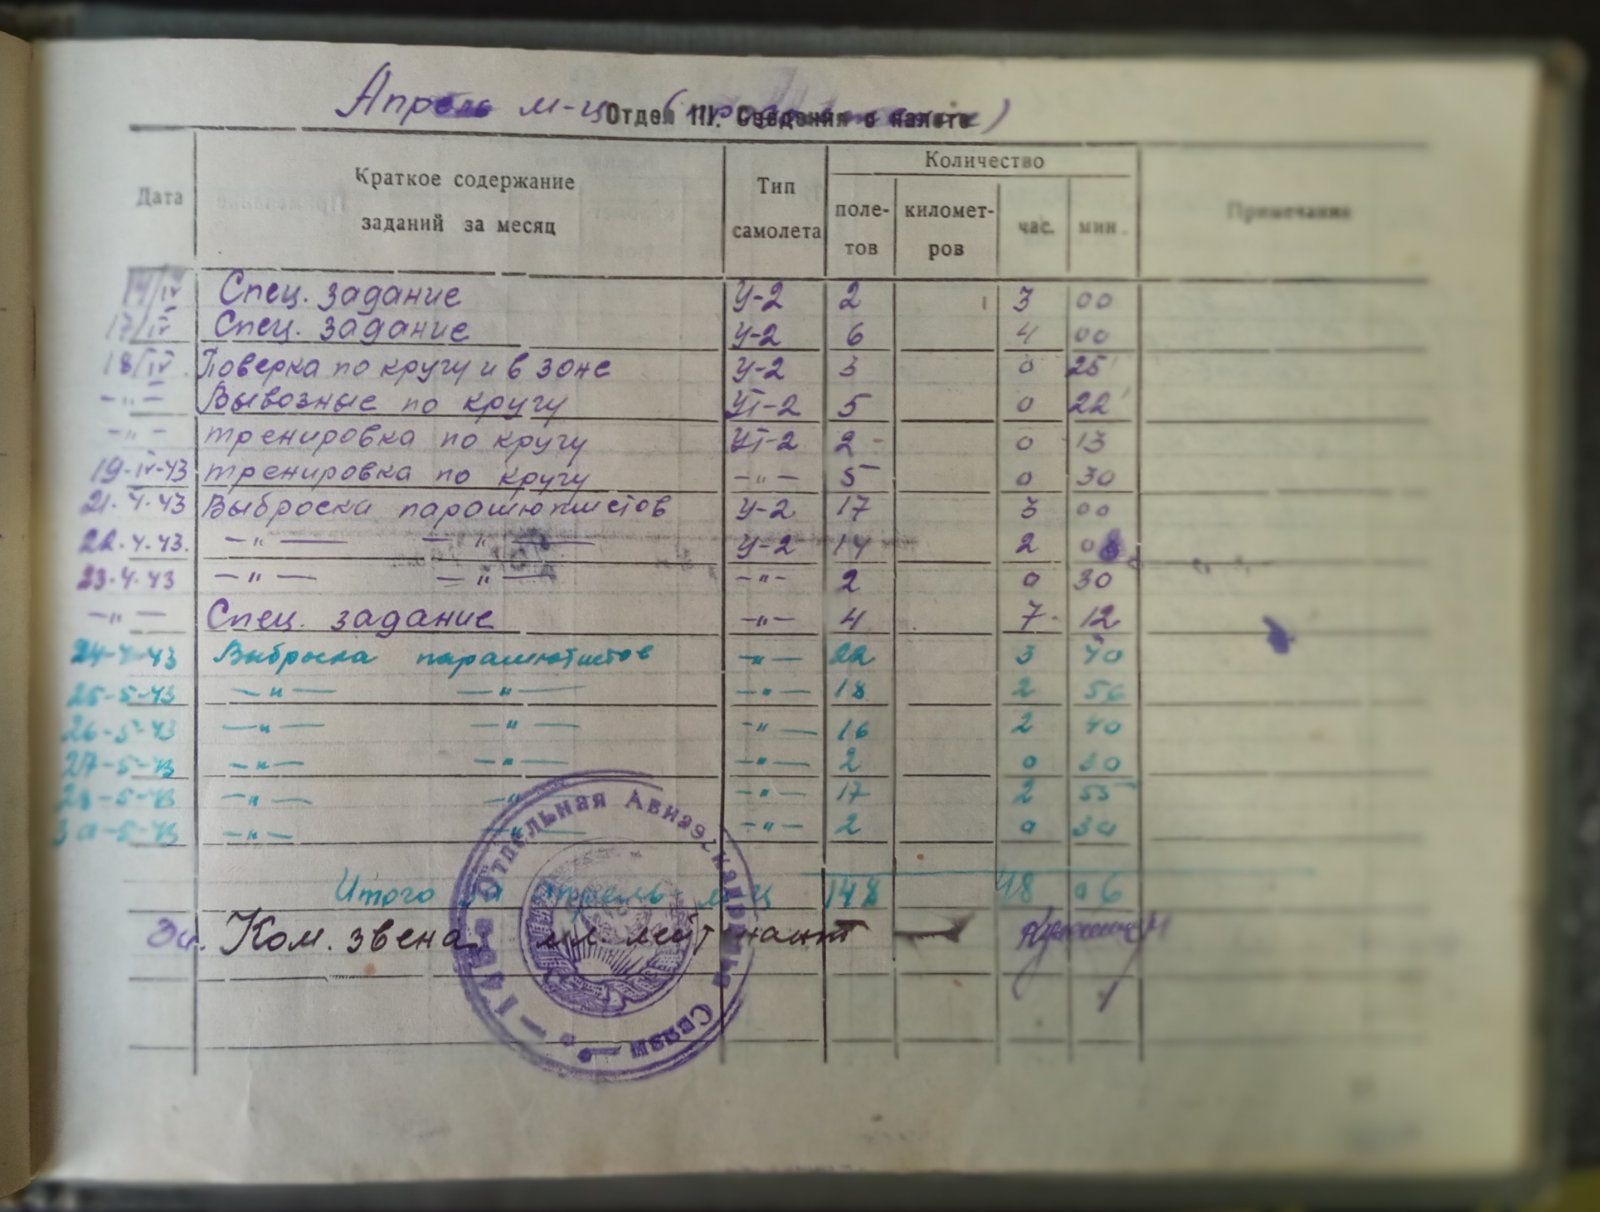 Апрель м-ц
Отдел III. Сведения о налете
Дата Краткое содержание заданий за месяц Тип самолета Количество Примечание
поле- километ- час. мин.
тов ров
14/IV Спец. задание У-2 2 3 00
17/IV Спец. задание У-2 6 4 00
18/IV Поверка по кругу и в зоне У-2 3 0 25
—"— Вывозные по кругу УТ-2 5 0 22
—"— тренировка по кругу УТ-2 2 0 13
19-IV-43 тренировка по кругу —"— 5 0 30
21.4.43 Выброска парашютистов У-2 17 3 00
22.4.43. —"— —"— У-2 14 2
23.4.43 —"— —"— —"— 2 0 30
—"— Спец. задание —"— 4 7 12
24-4-43 Выброска парашютистов —"— 22 3 40
25-5-43 —"— —"— —"— 18 2 56
26-5-43 —"— —"— —"— 16 2 40
27-5-43 —"— —"— —"— 2 0 30
28-5-43 —"— —"— —"— 17 2 55
30-5-43 —"— —"— —"— 2 0 30
Итого за апрель м-ц 148 48 06
Ком. звена мл. лейтенант
Отдельная Авиаэскадрилья Связи